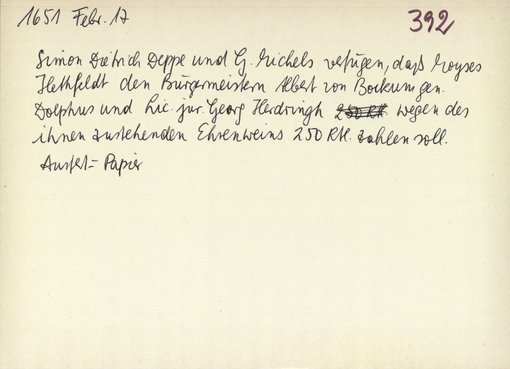 1651 Febr. 17 392
Simon Dietrich Deppe und G. Michels verfügen, daß Moyses
Hethfeldt den Bürgermeistern Albert von Bockum gen.
Dolphus und Lic. jur. Georg Herdringh 250 Rtl. wegen des
ihnen zustehenden Ehrenweins 250 Rtl. zahlen soll.
Ausfert.- Papier